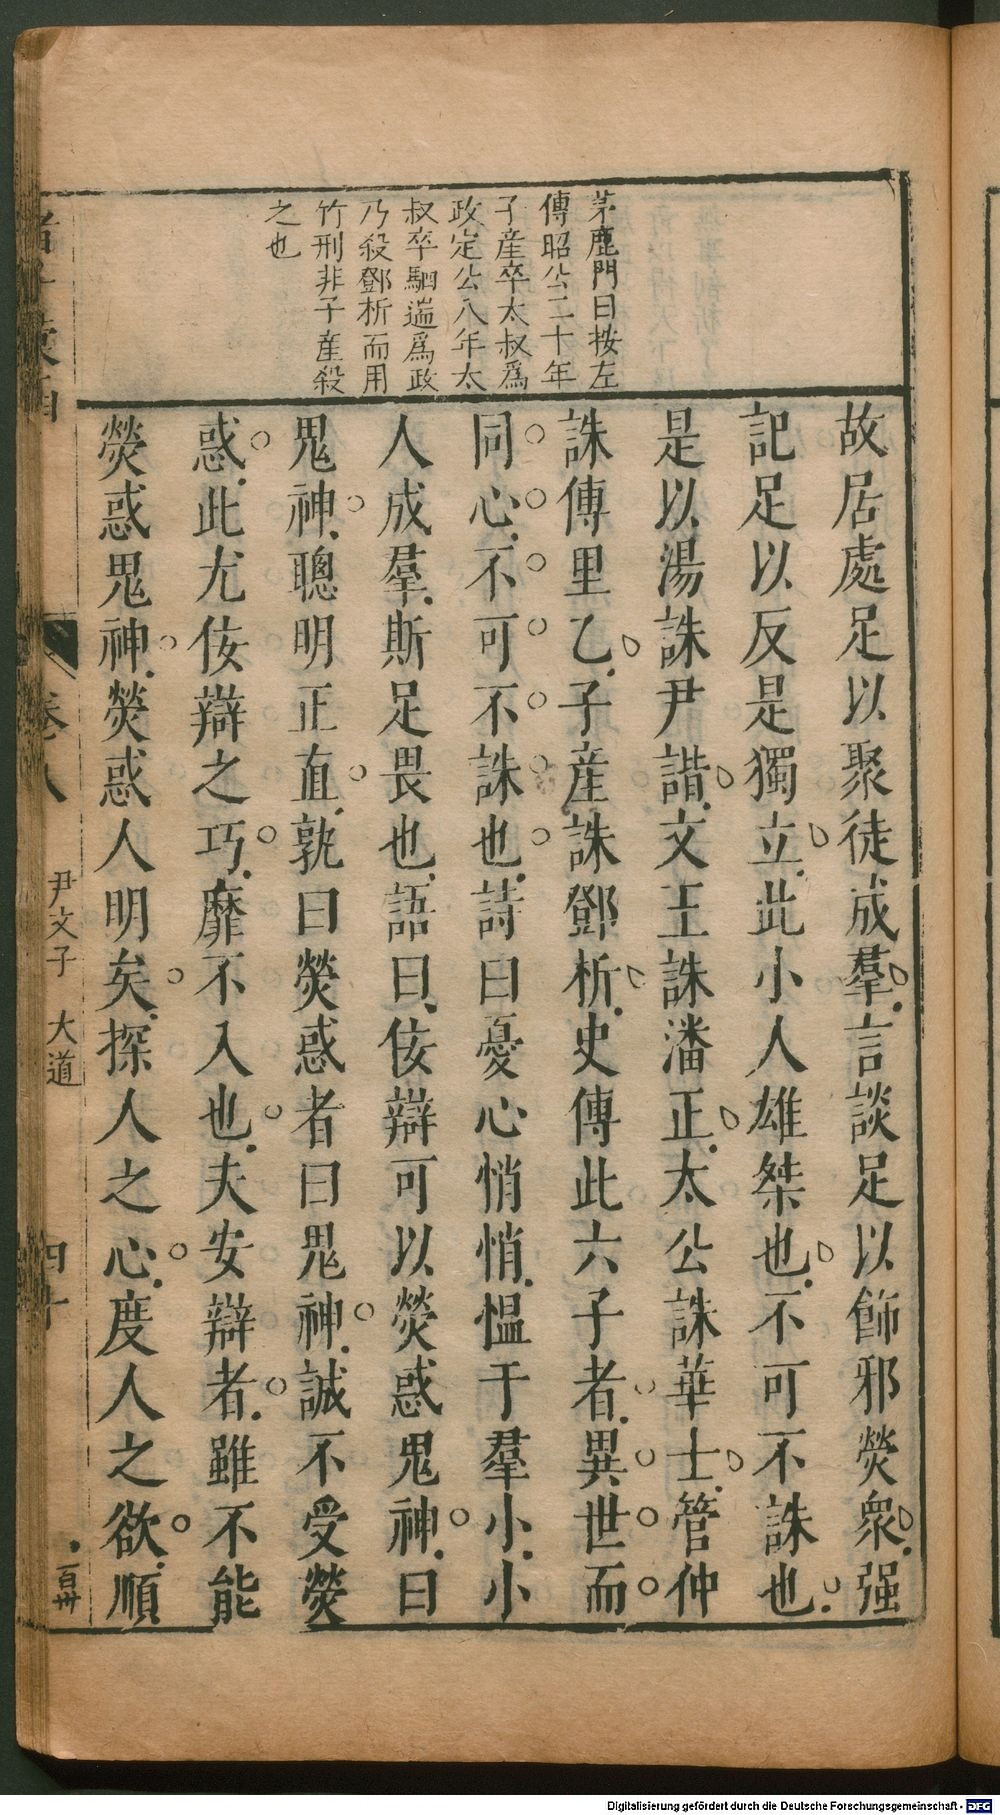 茅鹿門曰按左
傳昭公二十年
子產卒太叔爲
政定公八年太
叔卒駟遄爲政
乃殺鄧析而用
竹刑非子產殺
之也
故居處足以聚徒成羣言談足以飾邪熒衆强
記足以反是獨立此小人雄桀也不可不誅也
是以湯誅尹諧文王誅潘正太公誅華士管仲
誅傅里乙子產誅鄧析史傳此六子者異世而
同心不可不誅也詩曰憂心悄悄愠于羣小小
人成羣斯足畏也語曰佞辯可以熒惑鬼神曰
鬼神聰明正直孰曰熒惑者曰鬼神誠不受熒
惑此尤佞辯之巧靡不入也夫安辯者雖不能
熒惑鬼神熒惑人明矣探人之心度人之欲順
卷八
尹文子 大道
四十
百卅
Digitalisierung gefördert durch die Deutsche Forschungsgemeinschaft - DFG